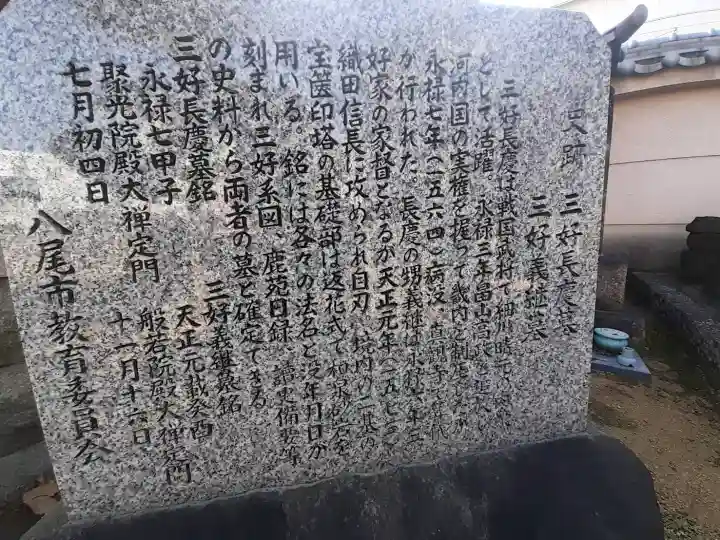 史跡 三好長慶墓
三好義継墓
三好長慶は戦国武将で細川晴元
として活躍、永禄三年畠山高政を追放し
河内国の実権を握って畿内を制
永禄七年(一五六四)病没、
が行われた。長慶の甥義継は永禄七年三
好家の家督となるが天正元年(一五七三)
織田信長に攻められ自刃、境内の二基の
宝篋印塔の基礎部は返花式で和泉砂岩を
用いる。銘には各々の法名と没年月日が
刻まれ三好系図、鹿苑日録、讀史備要等
の史料から両者の墓と確定できる
三好長慶墓銘
永禄七甲子
聚光院殿大禅定門
七月初四日
三好義継墓銘
天正元載癸酉
般若院殿大禅定門
十一月十六日
八尾市教育委員会